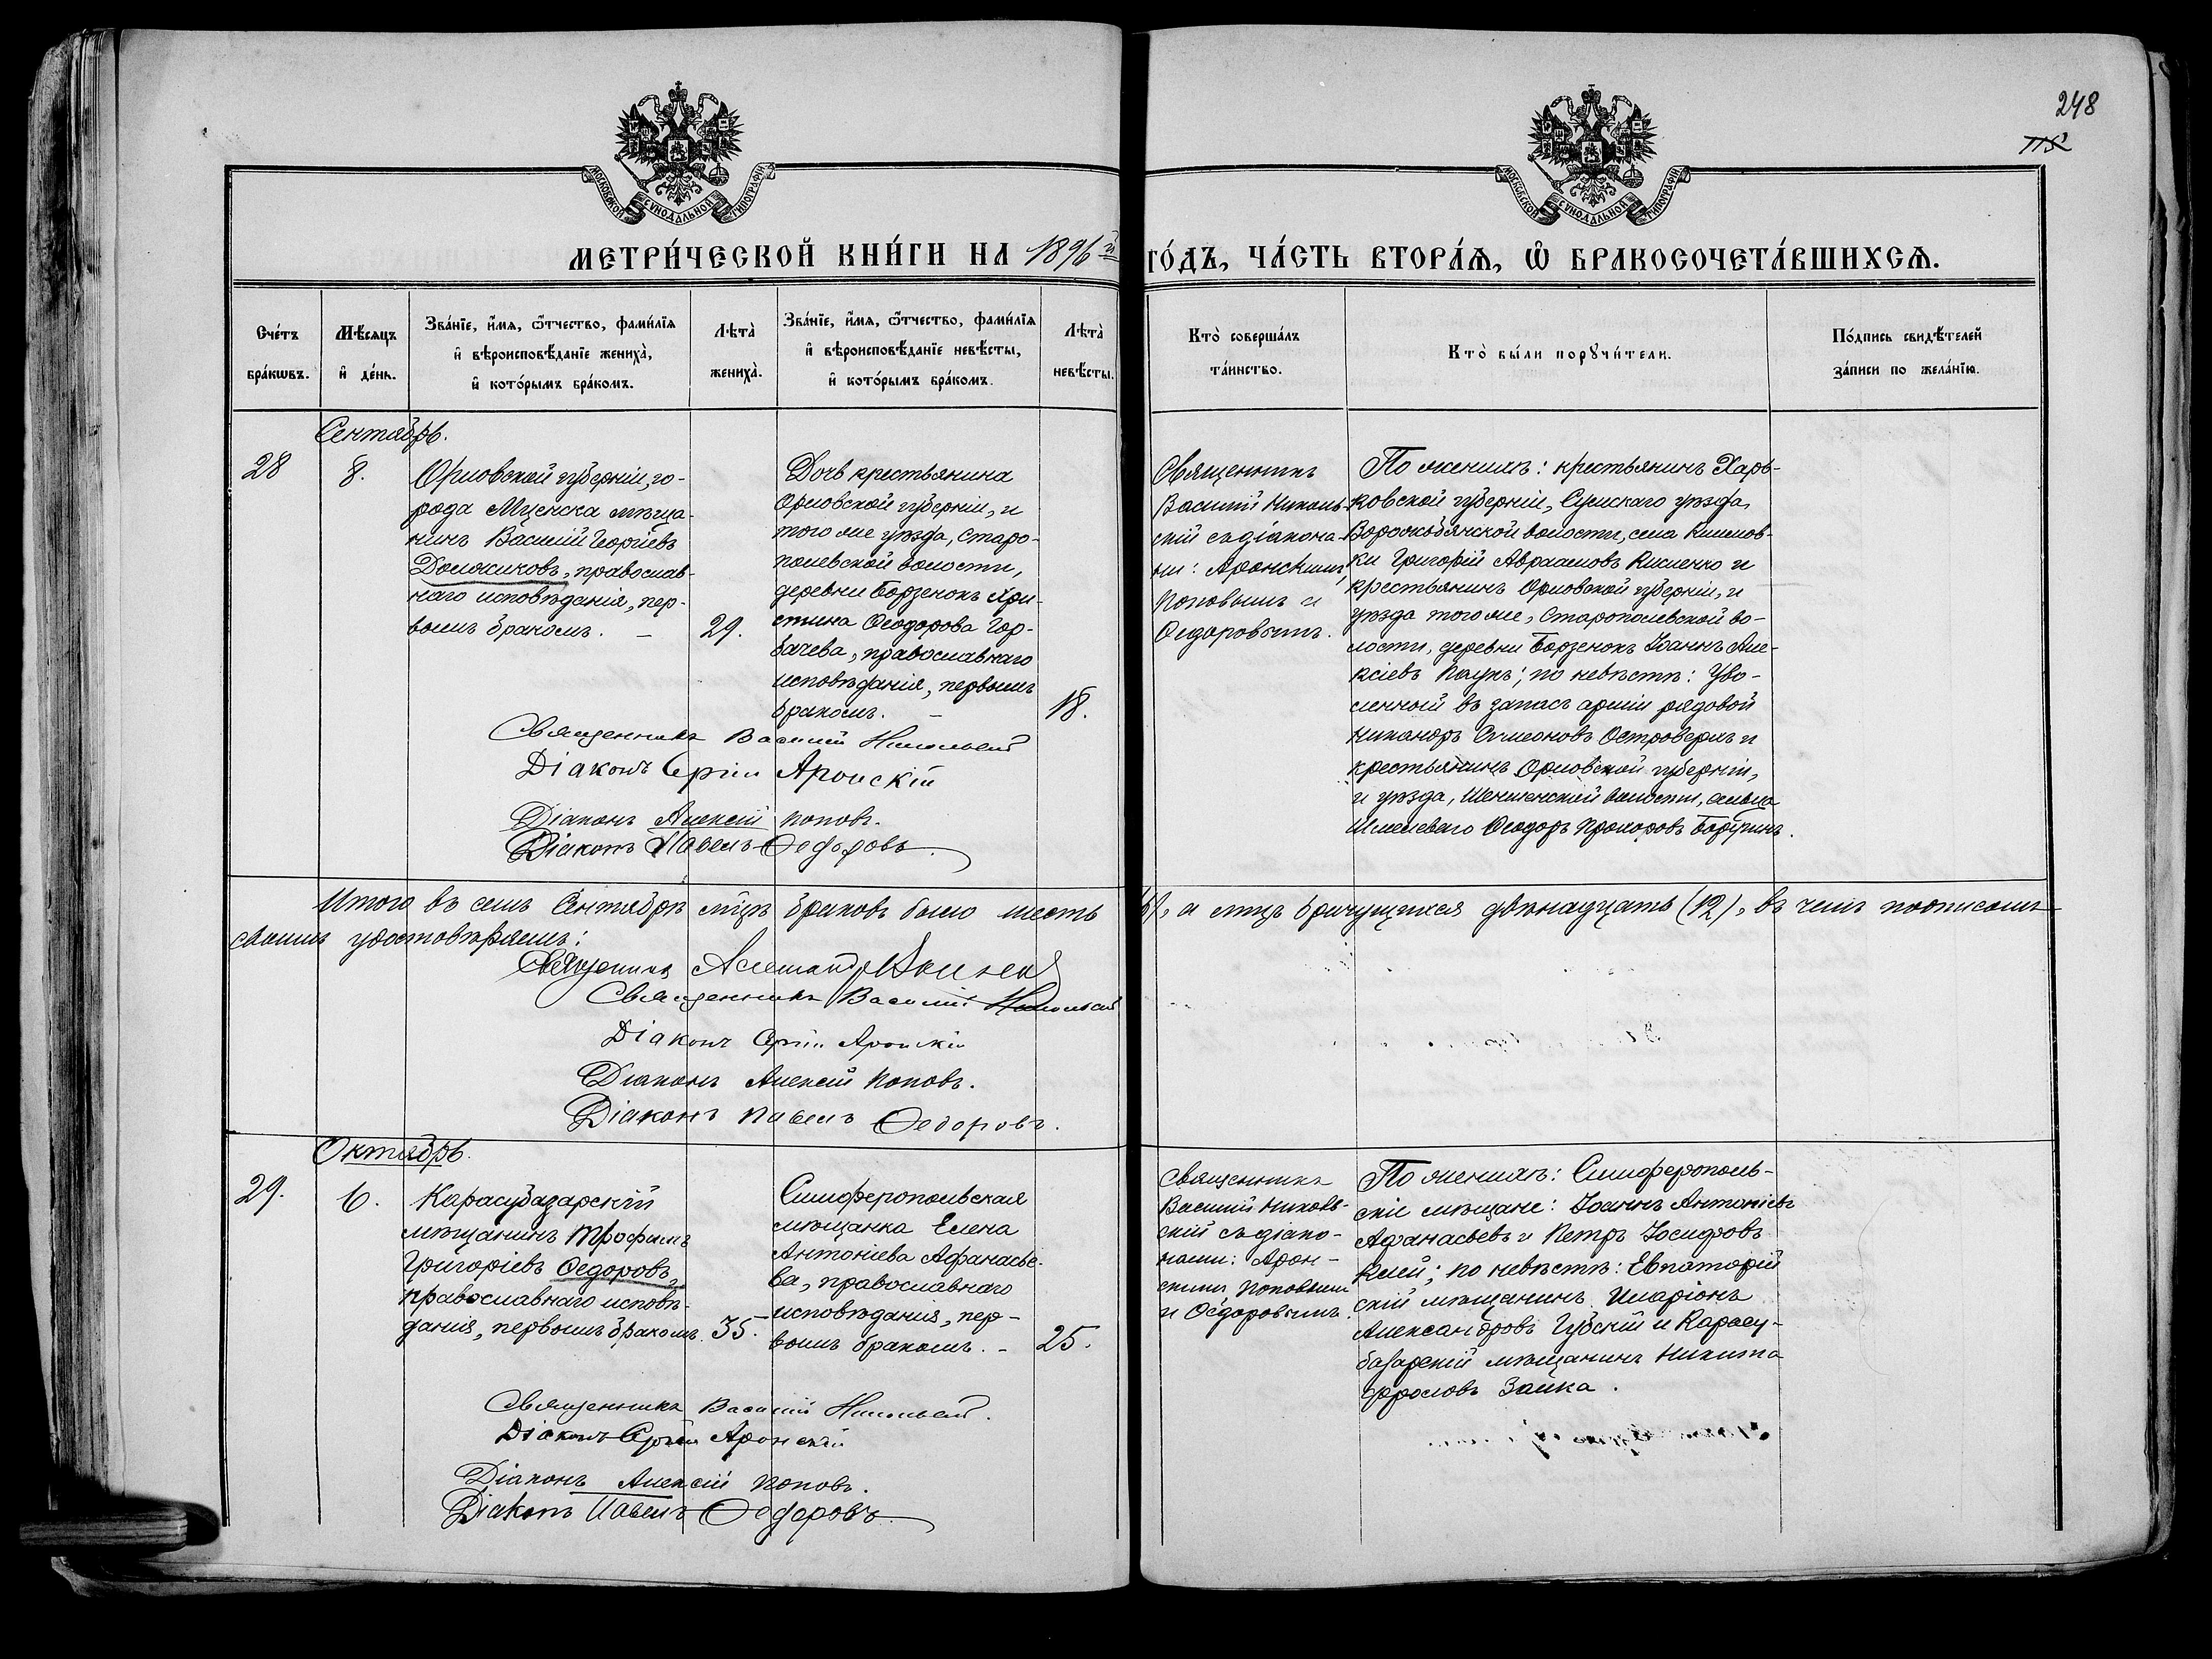 248
115
МОСКОВСКОЙ СѴНОДАЛЬНОЙ ТИПОГРАФІИ
МОСКОВСКОЙ СѴНОДАЛЬНОЙ ТИПОГРАФІИ
МЕТРИ́ЧЕСКОЙ КНИ́ГИ НА 1896й ГО́ДЪ, ЧА́СТЬ ВТОРА́Я, Ѡ҆ БРАКОСОЧЕТА́ВШИХСЯ.
Сче́тъ
бра́кѡвъ.
Мѣ́сяцъ
и҆ де́нь.
Зва́нїе, и҆́мя, ѻ҆́тчество, фами́лїя
и҆ вѣроисповѣ́данїе жениха̀,
и҆ кото́рымъ бра́комъ.
Лѣта̀
жениха̀.
Зва́нїе, и҆́мя, ѻ҆́тчество, фами́лїя
и҆ вѣроисповѣ́данїе невѣ́сты,
и҆ кото́рымъ бра́комъ.
Лѣта̀
невѣ́сты.
Кто̀ соверша́лъ
та́инство.
Кто̀ бы́ли порꙋчи́тели.
По́дпись свидѣ́телей
за́писи по жела́нїю.
Сентябрь.
28
8.
Орловской губерніи, го-
рода Мценска мѣща-
нинъ Василій Георгіевъ
Должиковъ, православ-
наго исповѣданія, пер-
вымъ бракомъ. —
29.
Дочь крестьянина
Орловской губерніи, и
того же уѣзда, Старо-
полевской волости,
деревни Борзенокъ Хри-
стина Ѳеодорова Гор-
бачева, православнаго
исповѣданія, первымъ
бракомъ. —
18.
Священникъ
Василій Николь-
скій съ діакона-
ми: Аронскимъ,
Поповымъ и
Ѳедоровымъ.
По женихѣ: крестьянинъ Харь-
ковской губерніи, Сумскаго уѣзда,
Ворожбянской волости, села
Григорій Авраамовъ Кисленко и
крестьянинъ Орловской губерніи, и
уѣзда того же, Старополевской во-
лости, деревни Борзенокъ Іоаннъ Але-
ксіевъ Паукъ; по невѣстѣ: Уво-
ленной въ запасъ арміи рядовой
Никаноръ Симеоновъ Островерхъ и
крестьянинъ Орловской губерніи,
и уѣзда, волости, сельца
Ѳеодоръ Прохоровъ
Священникъ Василій Никольскій
Діаконъ Сергій Аронскій
Діаконъ Алексій Поповъ.
Діаконъ Павелъ Ѳедоровъ.
Итого въ семъ Сентябрѣ мѣсяцѣ браковъ было шесть (6), а лицъ брачущихся двѣнадцать (12), въ чемъ подписомъ
своимъ удостовѣряемъ:
Священникъ Александръ
Священникъ Василій Никольскій
Діаконъ Сергій Аронскій
Діаконъ Алексій Поповъ.
Діаконъ Павелъ Ѳедоровъ.
Октябрь.
29.
6.
Карасубазарскій
мѣщанинъ Трофимъ
Григоріевъ Ѳедоровъ,
православнаго исповѣ-
данія, первымъ бракомъ.
35.
Симферопольская
мѣщанка Елена
Антоніева Афанасье-
ва, православнаго
исповѣданія, пер-
вымъ бракомъ. —
25.
Священникъ
Василій Николь-
скій съ діако-
нами: Арон-
скимъ, Поповымъ
и Ѳедоровымъ.
По женихѣ: Симферополь-
скіе мѣщане: Іоаннъ Антоніевъ
Афанасьевъ и Петръ Іосифовъ
по невѣстѣ: Евпаторій
скій мѣщанинъ Иларіонъ
Александровъ Губскій и Карасу-
базарскій мѣщанинъ Никита
Фроловъ Зайка.
Священникъ Василій Никольскій.
Діаконъ Сергій Аронскій
Діаконъ Алексій Поповъ.
Діаконъ Павелъ Ѳедоровъ.